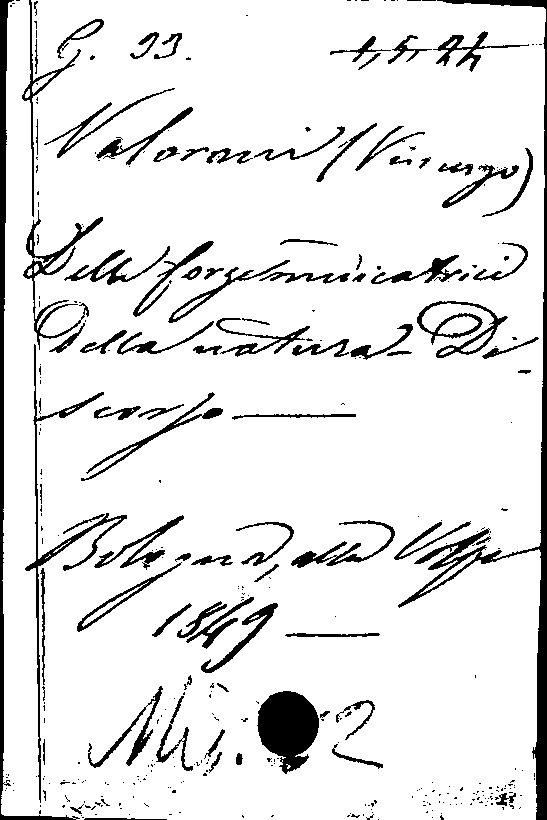 G. 33. 1, 5, 24
Valorani (Vincenzo)
Delle forze medicatrici
della natura - Di-
scorso —
Bologna, alla Volpe
1849 —
Mis. 2